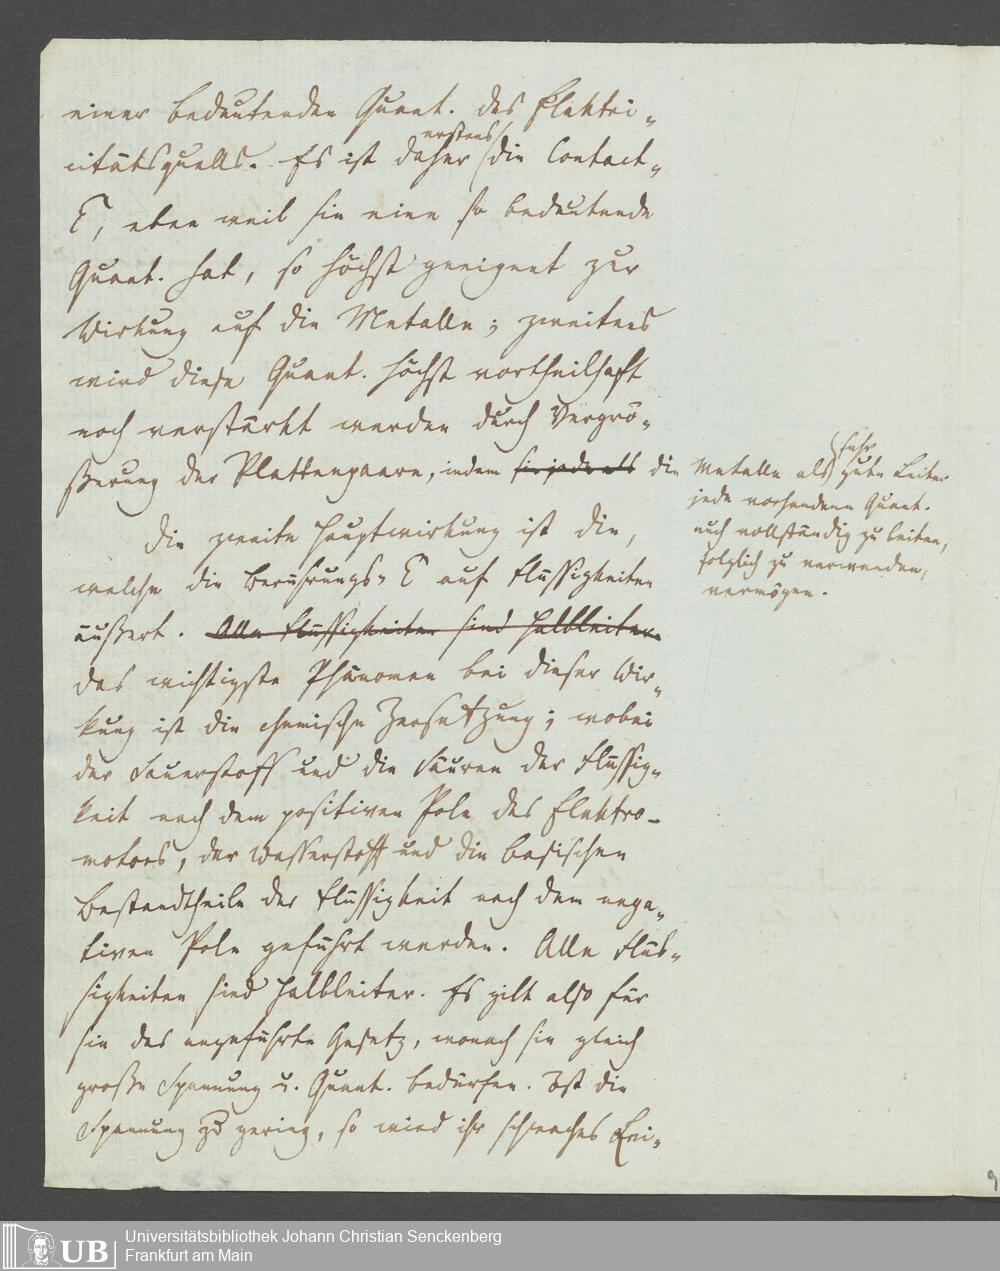 einer bedeutenden Quant. des Elektri-
citätsquells. Es ist daher erstens die Contact-
E, eben weil sie eine so bedeutende
Quant. hat, so höchst geeignet zur
Wirkung auf die Metalle; zweitens
wird diese Quant. höchst vortheilhaft
noch verstärkt werden durch Vergrö-
ßerung der Plattenpaare, indem sie jede als die Metalle als sehr gute Leiter
jede vorhandene Quant.
auch vollständig zu leiten,
folglich zu verwenden,
vermögen.
Die zweite Hauptwirkung ist die,
welche die Berührungs-E auf Flüssigkeiten
äußert. Alle Flüssigkeiten sind Halbleiter.
Das wichtigste Phänomen bei dieser Wir-
kung ist die chemische Zersetzung; wobei
der Sauerstoff und die Säuren der Flüssig-
keit nach dem positiven Pole des Elektro-
motors, der Wasserstoff und die basischen
Bestandtheile der Flüssigkeit nach dem nega-
tiven Pole geführt werden. Alle Flüs-
sigkeiten sind Halbleiter. Es gilt also für
sie das angeführte Gesetz, wonach sie gleich
große Spannung u. Quant. bedürfen. Ist die
Spannung zu gering, so wird ihr schwaches Lei-
9
UB
Universitätsbibliothek Johann Christian Senckenberg
Frankfurt am Main